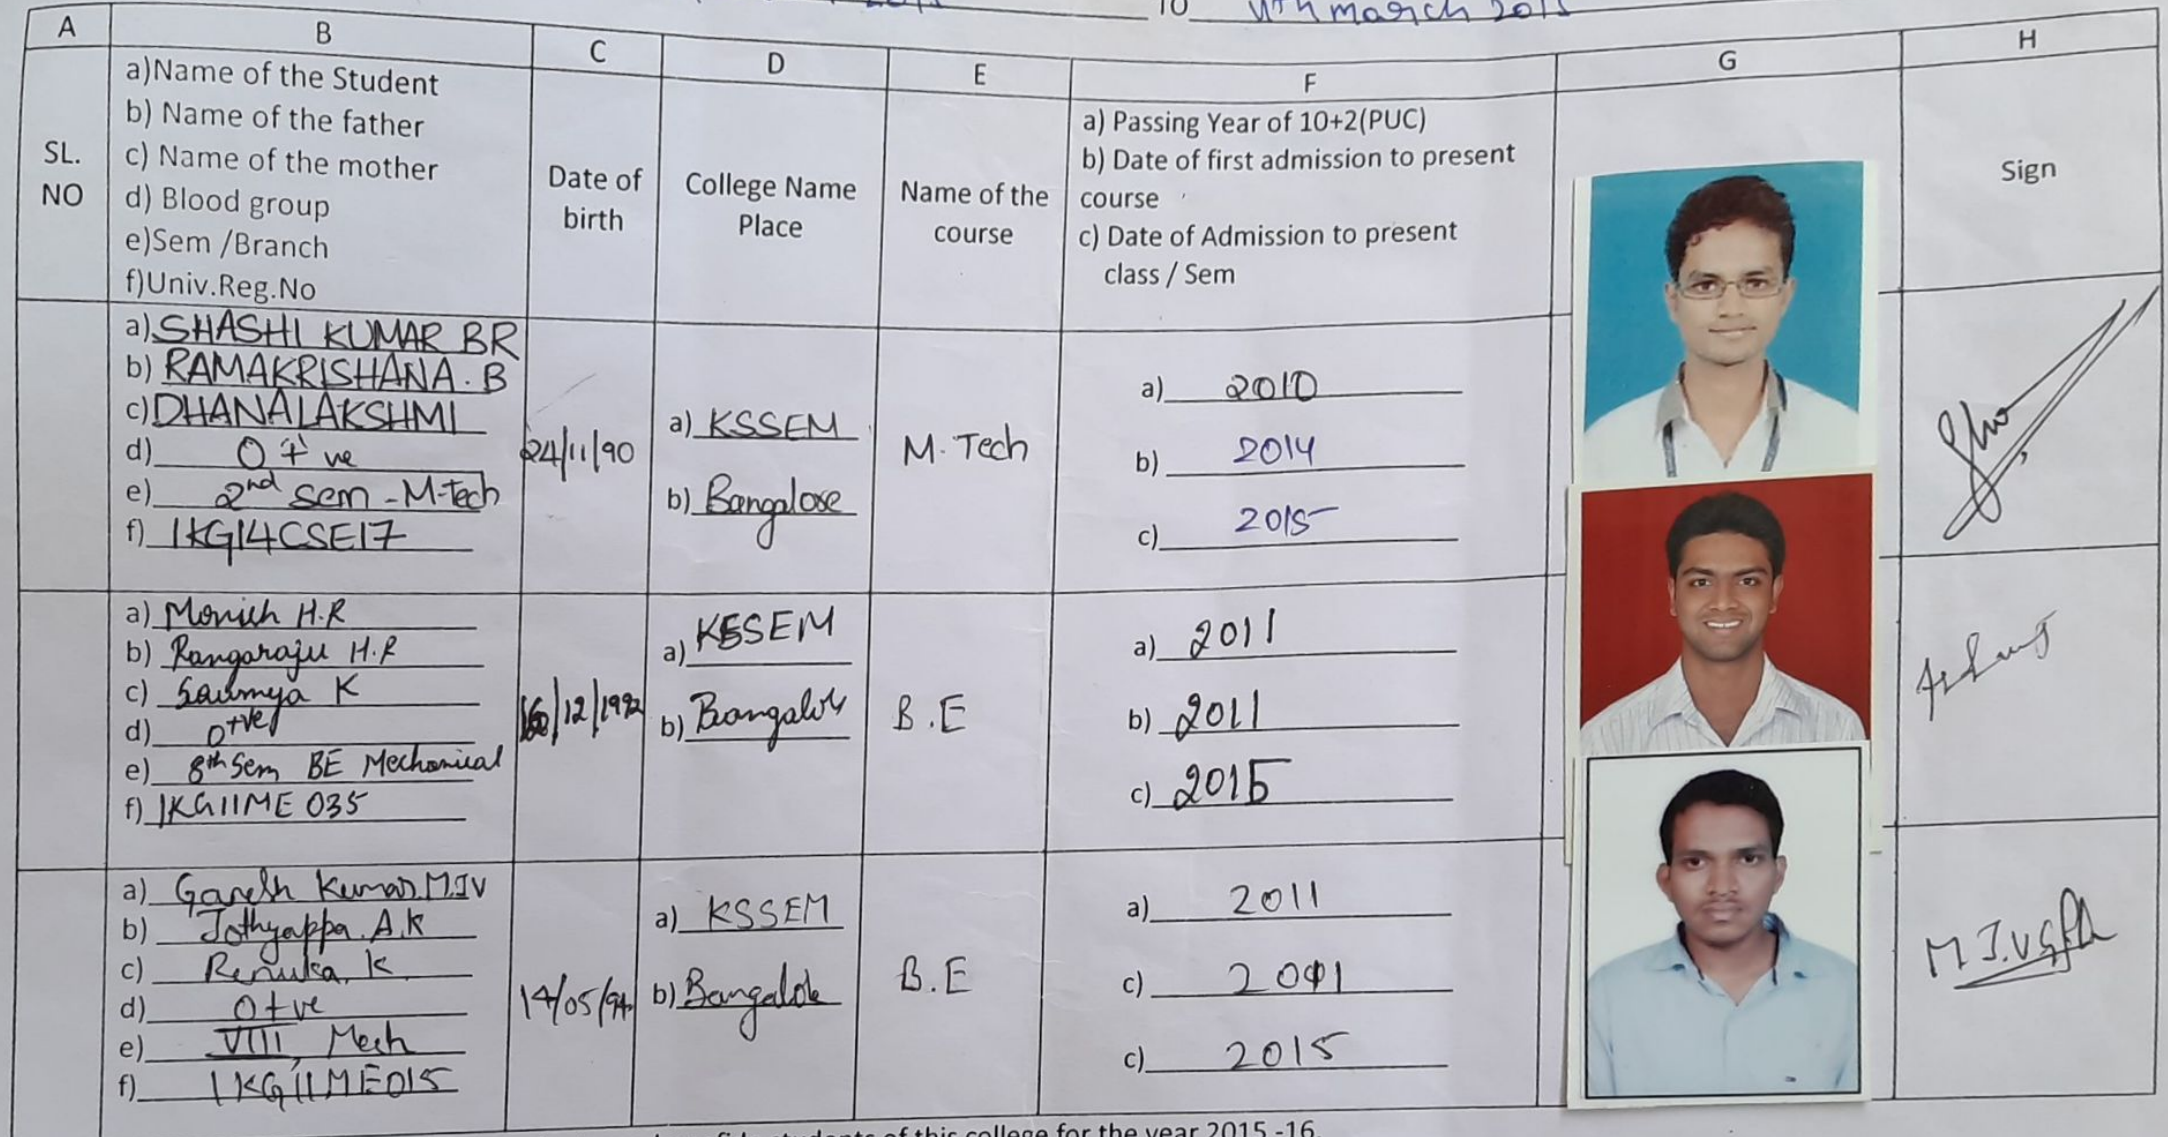 TO 11th march 2015
A B C D E F G H
SL.
NO
a)Name of the Student
b) Name of the father
c) Name of the mother
d) Blood group
e)Sem /Branch
f)Univ.Reg.No
Date of
birth
College Name
Place
Name of the
course
a) Passing Year of 10+2(PUC)
b) Date of first admission to present
course
c) Date of Admission to present
class / Sem
Sign
a) SHASHI KUMAR BR
b) RAMAKRISHANA. B
c) DHANALAKSHMI
d) O + ve
e) 2nd sem - M-Tech
f) 1KG14CSE17
24/11/90
a) KSSEM
b) Bangalore
M. Tech
a) 2010
b) 2014
c) 2015
a) H.R
b) Rangaraju H.R
c) Saumya K
d) O+ve
e) 8th Sem BE Mechanical
f) 1KG11ME 035
/12/1992
a) KSSEM
b) Bangalore
B.E
a) 2011
b) 2011
c) 2015
a) Ganesh Kumar.M.JV
b) Jothyappa. A.K
c) Renuka. K
d) O+ve
e) VIII, Mech
f) 1KG11ME015
14/05/94
a) KSSEM
b) Bangalore
B.E
a) 2011
c) 2011
c) 2015
M.J.V
students of this college for the year 2015 -16.